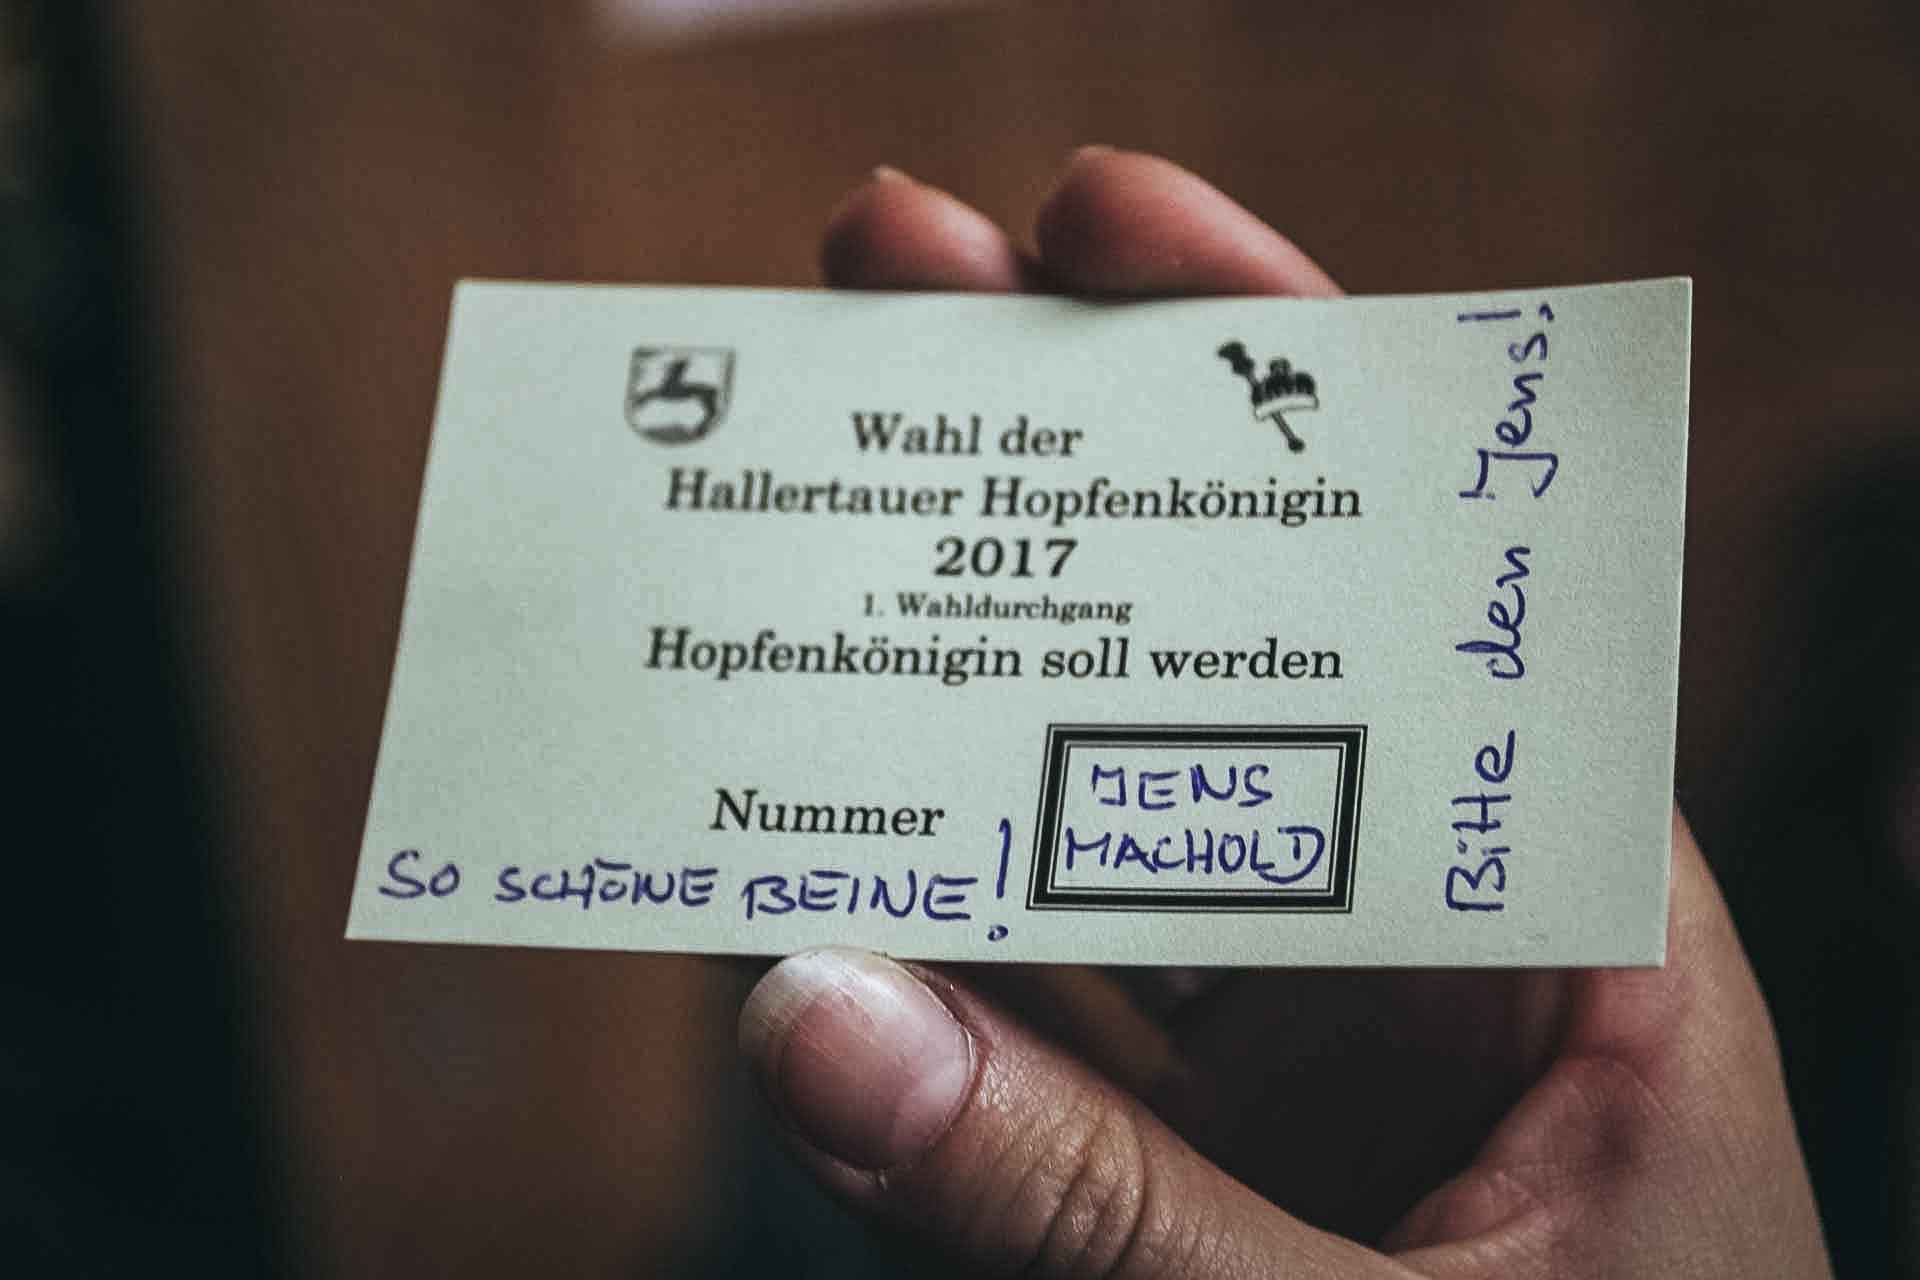 Wahl der
Hallertauer Hopfenkönigin
2017
1. Wahldurchgang
Hopfenkönigin soll werden
Nummer
JENS
MACHOLD
SO SCHÖNE BEINE!
Bitte den Jens!